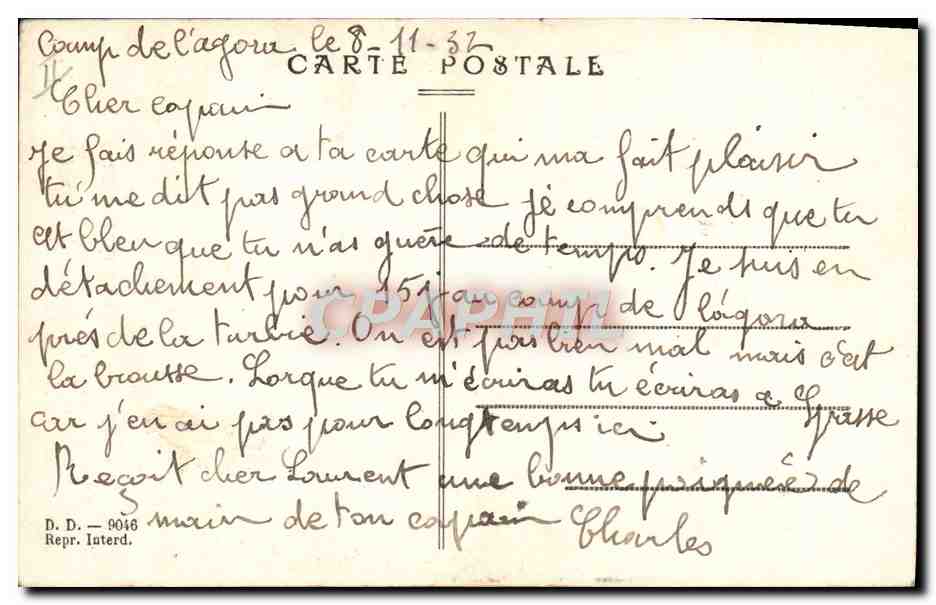 Camp de l'agora le 8-11-32
CARTE POSTALE
Cher copain
Je fais réponse a ta carte qui ma fait plaisir
tu me dit pas grand chose je comprends que tu
est bleu que tu n'as guère de temps. Je suis en
détachement pour 15 j au camp de l'ágora
près de la turbie. On est pas bien mal mais c'est
la brousse. Lorque tu m'écriras tu écriras a Grasse
car j'en ai pas pour longtemps ici
Reçoit cher Laurent une bonne poignée de
main de ton copain Charles
D. D. — 9046
Repr. Interd.
CPAPHIL